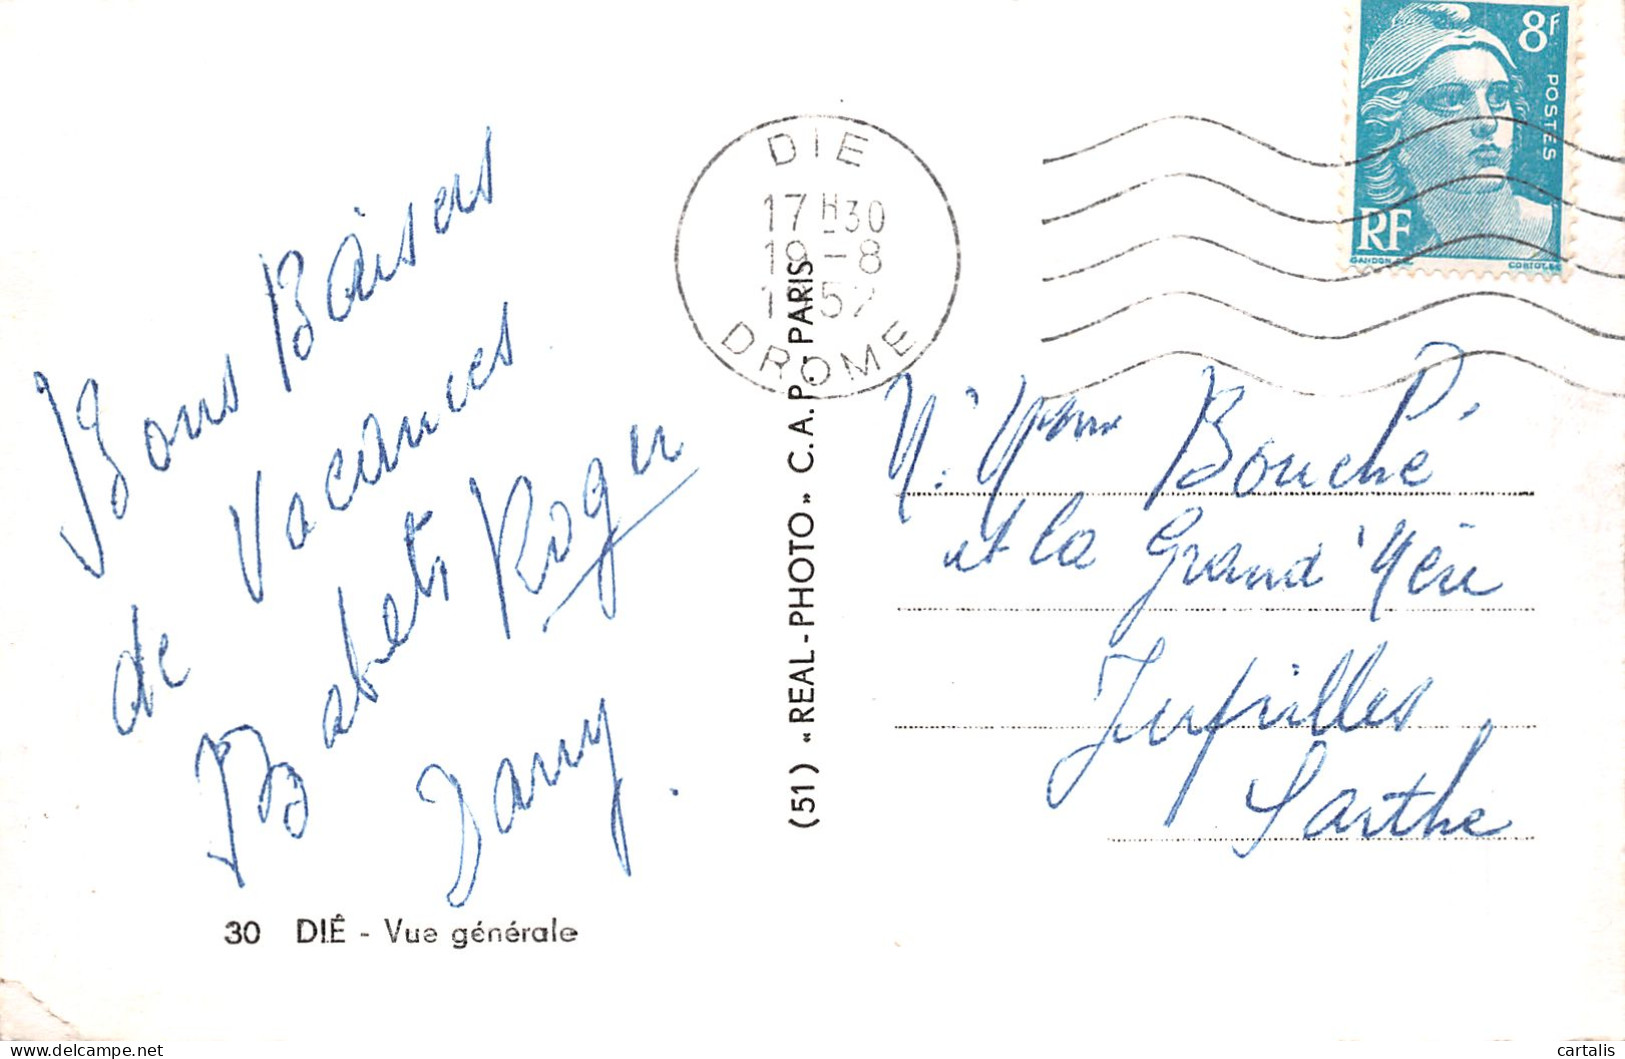 Bons Baisers
de Vacances
Babeth Roger
Dany.
30 DIÉ - Vue générale
(51) « REAL-PHOTO » C.A.P. - PARIS
DIE
17H30
19-8
1952
DROME
8F
POSTES
RF
GANDON
CORTOT.SC
M. Mme Bouché P.
et la Grand'Mère
Jupilles
Sarthe
cartalis